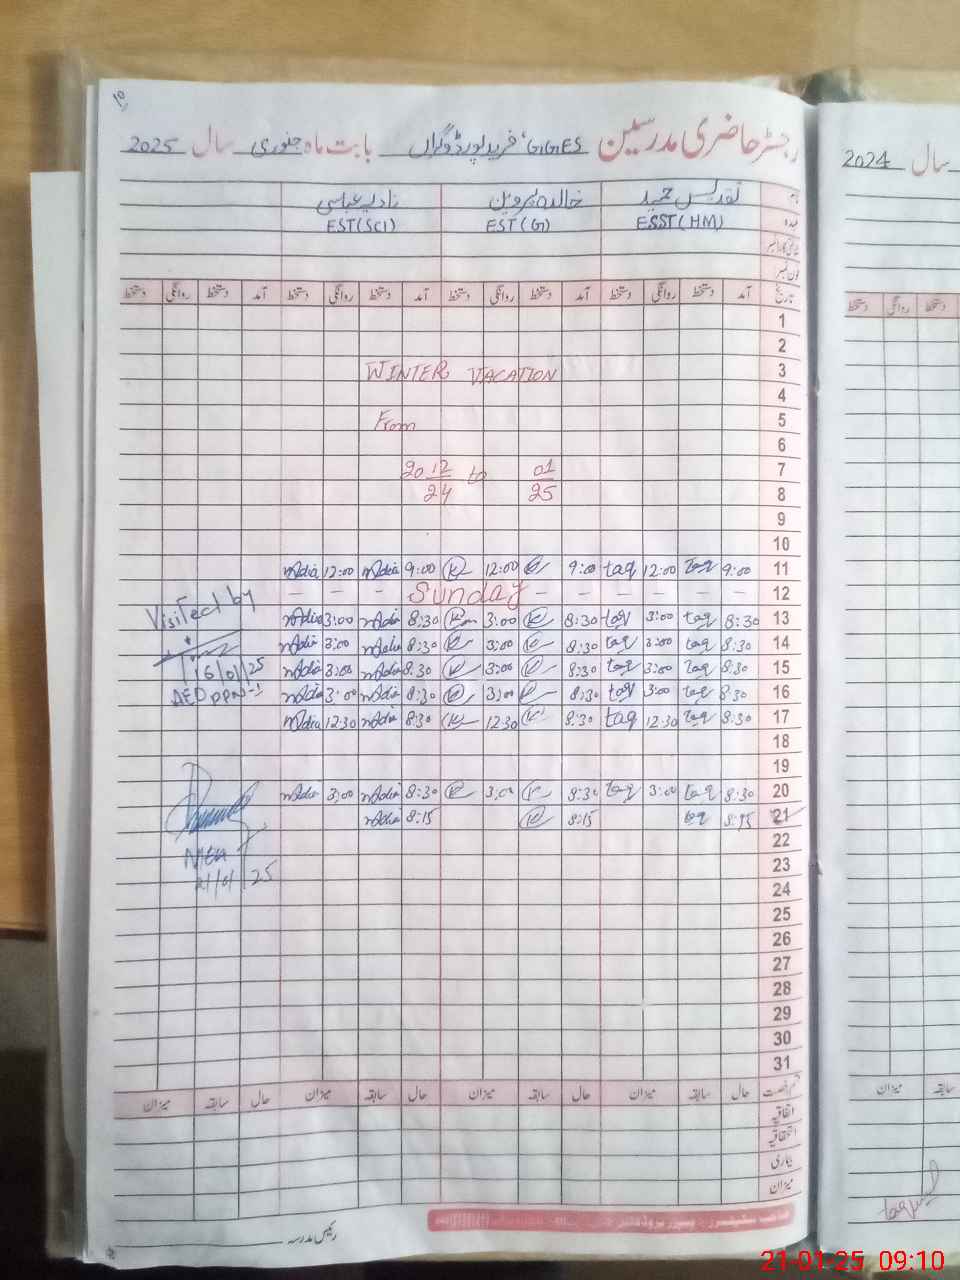 رجسٹر حاضری مدرسین GGES، فرید پور ڈوگراں بابت ماہ جنوری سال 2025
نام تقدیس حمید خالدہ پروین نادیہ عباسی
عہدہ ESST (HM) EST (G) EST (SCI)
فون نمبر
تاریخ آمد دستخط روانگی دستخط آمد دستخط روانگی دستخط آمد دستخط روانگی دستخط آمد دستخط روانگی دستخط
1
2
3 WINTER VACATION
4
5 From
6
7 20 12 to 01
8 24 25
9
10
11 9:00 taq 12:00 taq 9:00 12:00 9:00 Nadia 12:00 Nadia
12 Sunday
13 8:30 taq 3:00 taq 8:30 3:00 8:30 Nadia 3:00 Nadia
14 8:30 taq 3:00 taq 8:30 3:00 8:30 Nadia 3:00 Nadia
15 8:30 taq 3:00 taq 8:30 3:00 8:30 Nadia 3:00 Nadia
16 8:30 taq 3:00 taq 8:30 3:00 8:30 Nadia 3:00 Nadia
17 8:30 taq 12:30 taq 8:30 12:30 8:30 Nadia 12:30 Nadia
18
19
20 8:30 taq 3:00 taq 8:30 3:00 8:30 Nadia 3:00 Nadia
21 taq 8:15 8:15 Nadia
22
23
24
25
26
27
28
29
30
31
Visited by
16/01/25
AEO
21/01/25
قسم رخصت حال سابقہ میزان حال سابقہ میزان حال سابقہ میزان حال سابقہ میزان
اتفاقیہ
استحقاقیہ
بیماری
میزان
رئیس مدرسہ
سال 2024
دستخط روانگی دستخط
سابقہ میزان
21-01-25 09:10